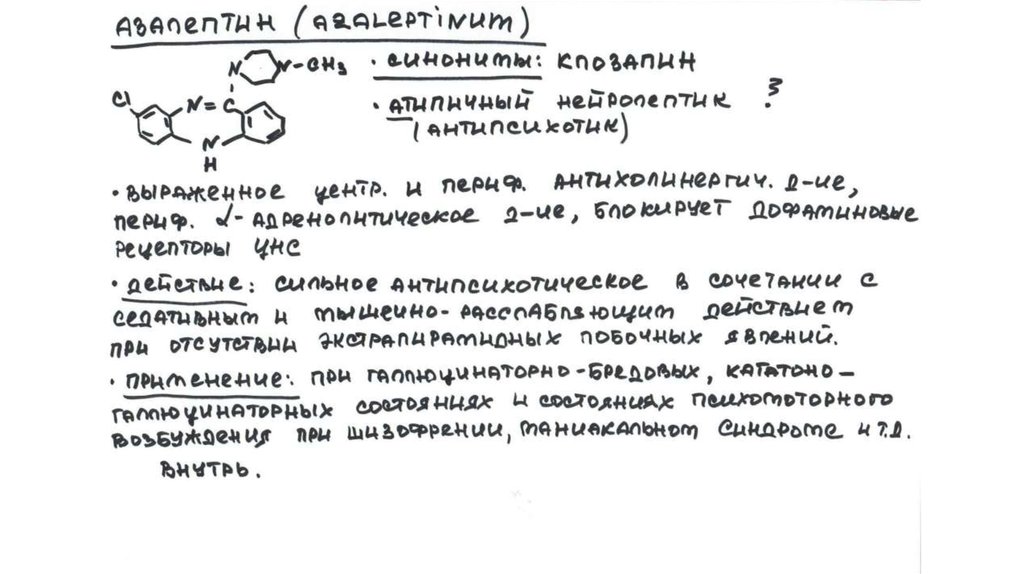 АЗАЛЕПТИН (AZALEPTINUM)
N N-CH3 · СИНОНИМЫ: КЛОЗАПИН
Cl N=C · АТИПИЧНЫЙ НЕЙРОЛЕПТИК ?
(АНТИПСИХОТИК)
N
H
· ВЫРАЖЕННОЕ ЦЕНТР. И ПЕРИФ. АНТИХОЛИНЕРГИЧ. Д-ИЕ,
ПЕРИФ. α-АДРЕНОЛИТИЧЕСКОЕ Д-ИЕ, БЛОКИРУЕТ ДОФАМИНОВЫЕ
РЕЦЕПТОРЫ ЦНС
· ДЕЙСТВИЕ: СИЛЬНОЕ АНТИПСИХОТИЧЕСКОЕ В СОЧЕТАНИИ С
СЕДАТИВНЫМ И МЫШЕЧНО-РАССЛАБЛЯЮЩИМ ДЕЙСТВИЕМ
ПРИ ОТСУТСТВИИ ЭКСТРАПИРАМИДНЫХ ПОБОЧНЫХ ЯВЛЕНИЙ.
· ПРИМЕНЕНИЕ: ПРИ ГАЛЛЮЦИНАТОРНО-БРЕДОВЫХ, КАТАТОНО-
ГАЛЛЮЦИНАТОРНЫХ СОСТОЯНИЯХ И СОСТОЯНИЯХ ПСИХОМОТОРНОГО
ВОЗБУЖДЕНИЯ ПРИ ШИЗОФРЕНИИ, МАНИАКАЛЬНОМ СИНДРОМЕ И Т.Д.
ВНУТРЬ.